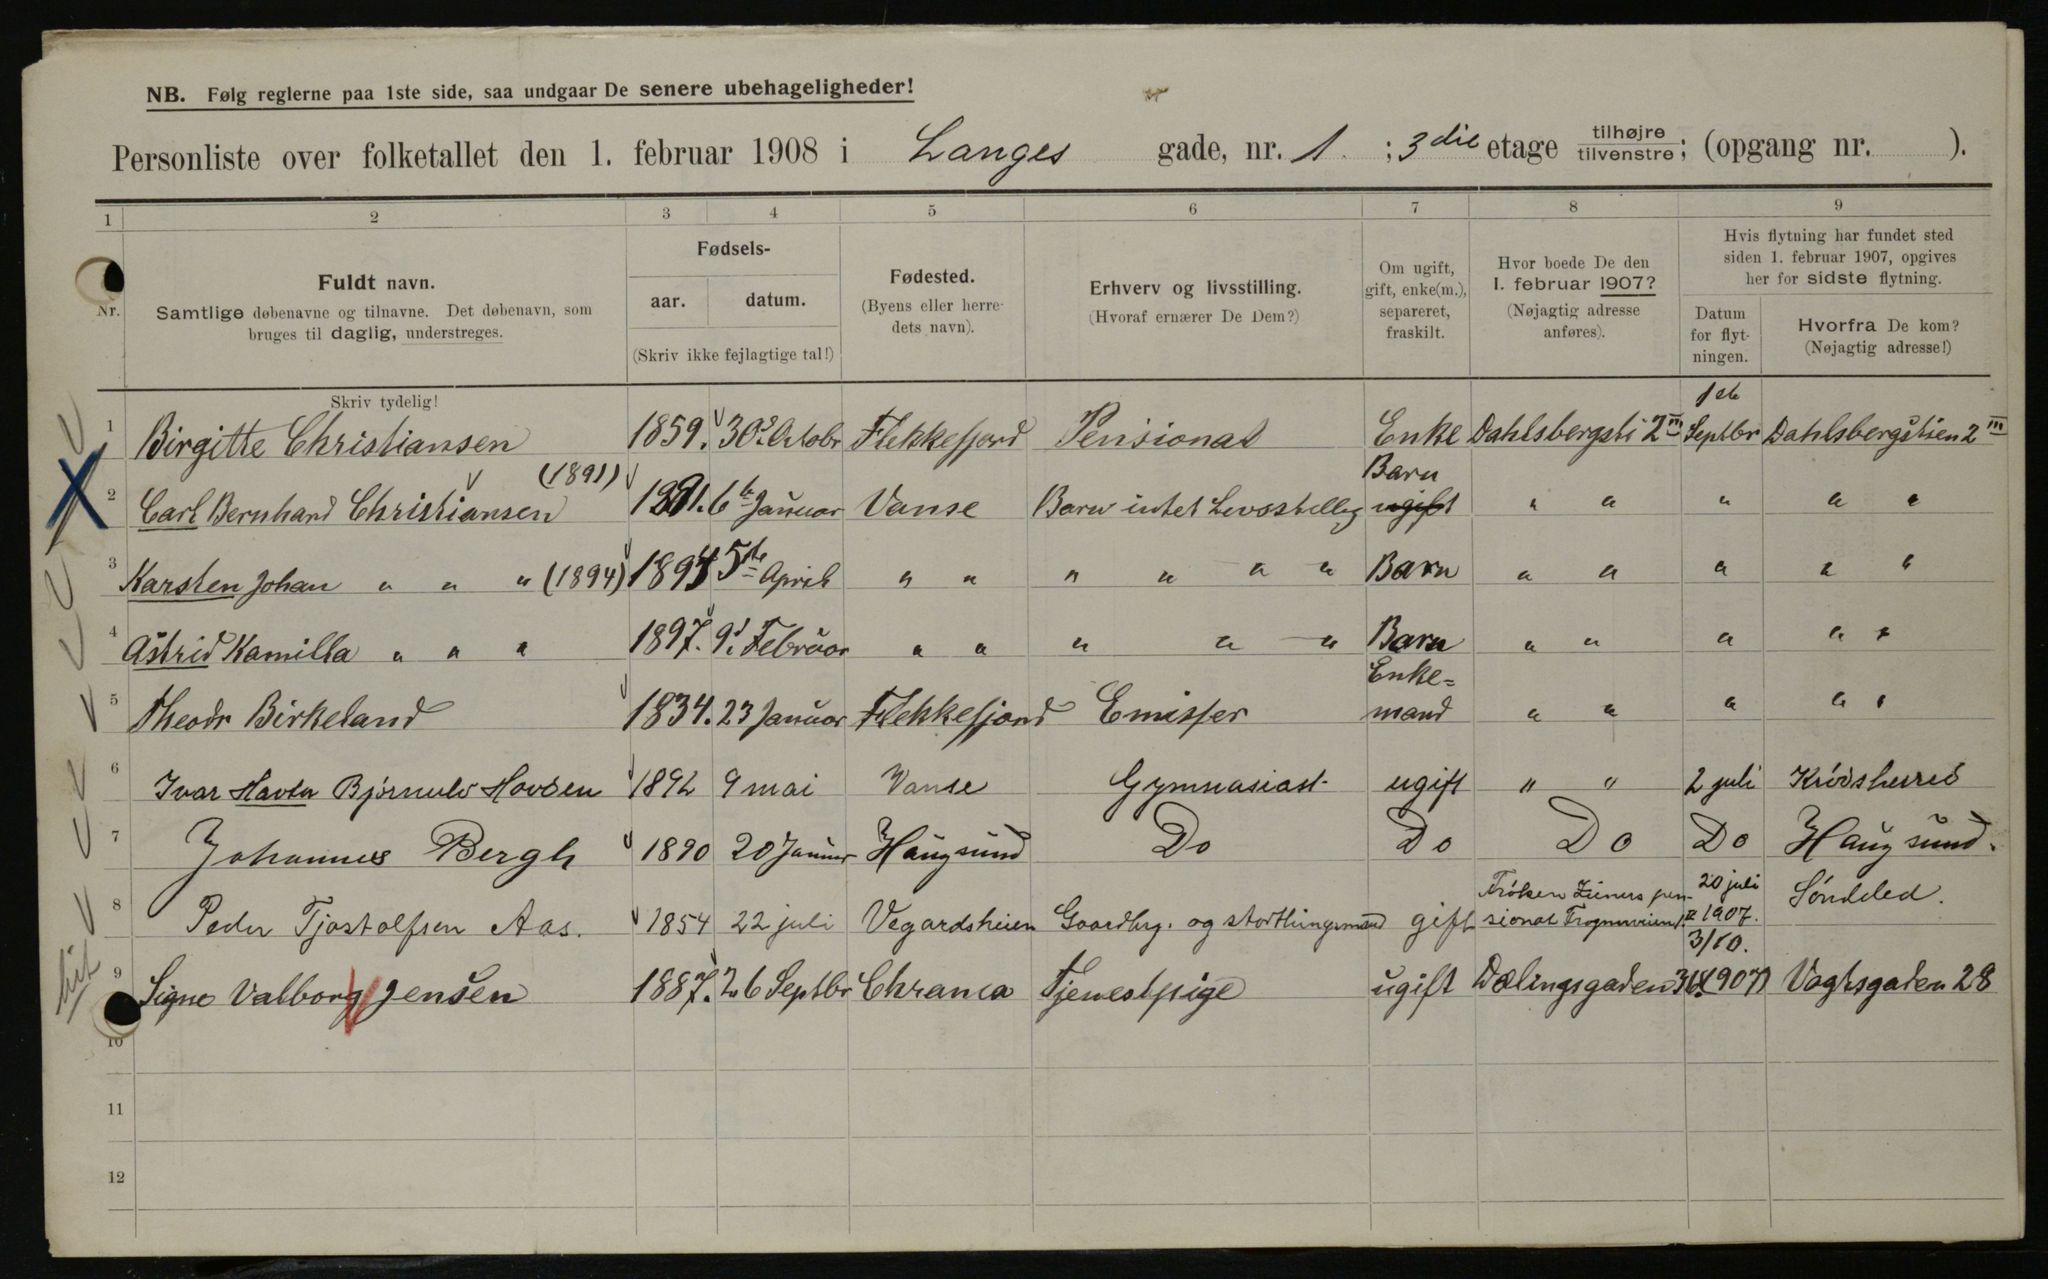 NB. Følg reglerne paa 1ste side, saa undgaar De senere ubehageligheder!
Personliste over folketallet den 1. februar 1908 i Langes gade, nr. 1 ; 3die etage tilhøjre tilvenstre; (opgang nr. ).
1 2 3 4 5 6 7 8 9
Nr.
Fuldt navn.
Samtlige døbenavne og tilnavne. Det døbenavn, som
bruges til daglig, understreges.
Skriv tydelig!
Fødsels-
aar. datum.
(Skriv ikke fejlagtige tal!)
Fødested.
(Byens eller herre-
dets navn).
Erhverv og livsstilling.
(Hvoraf ernærer De Dem?)
Om ugift,
gift, enke(m.),
separeret,
fraskilt.
Hvor boede De den
1. februar 1907?
(Nøjagtig adresse
anføres).
Hvis flytning har fundet sted
siden 1. februar 1907, opgives
her for sidste flytning.
Datum
for flyt-
ningen.
Hvorfra De kom?
(Nøjagtig adresse!)
1 Birgitte Christiansen 1859. 30 Octobr Flekkefjord Pensionat Enke Dahlsbergsti 2 III 1ste Septbr Dahlsbergstien 2 III
2 Carl Bernhard Christiansen (1891) 1891. 6te Januar Vanse Barn intet Levestillg Barn ugift " " " " "
3 Karsten Johan " " " (1894) 1894 5te April " " " " " " Barn " " " " "
4 Astrid Kamilla " " " 1897. 9d Februar " " " " " Barn " " " " "
5 Theodr Birkeland 1834. 23 Januar Flekkefjord Emissær Enke=
mand " " " " "
6 Ivar Bjørnulv Hovden 1892 9 mai Vanse Gymnasiast ugift " " 2 juli Krødsherred
7 Johannes Bergh 1890 20 Januar Haugsund Do Do Do Do Haugsund.
8 Peder Tjostolfsen Aas. 1854 22 juli Vegardsheien Gaardbrg. og storthingsmand gift Frøken Zieners pen-
sionat 20 juli
1907. Søndeled.
9 Signe Valborg Jensen 1887. 26 Septbr Chrania Tjenestpige ugift Dælingsgaden 3/10. 1907 Vogtsgaden 28
10
11
12